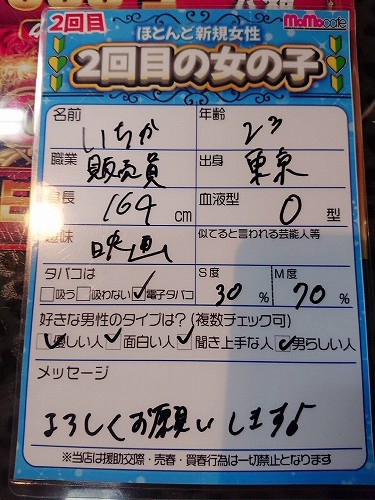 2回目
MoMocafe
ほとんど新規女性
2回目の女の子
名前 いちか
年齢 23
職業 販売員
出身 東京
身長 164 cm
血液型 O 型
趣味 映画
似てると言われる芸能人等
タバコは
□吸う □吸わない ☑電子タバコ
S度 30 %
M度 70 %
好きな男性のタイプは?(複数チェック可)
☑優しい人 ☑面白い人 ☑聞き上手な人 ☑男らしい人
メッセージ
よろしくお願いします♪
※当店は援助交際・売春・買春行為は一切禁止となります